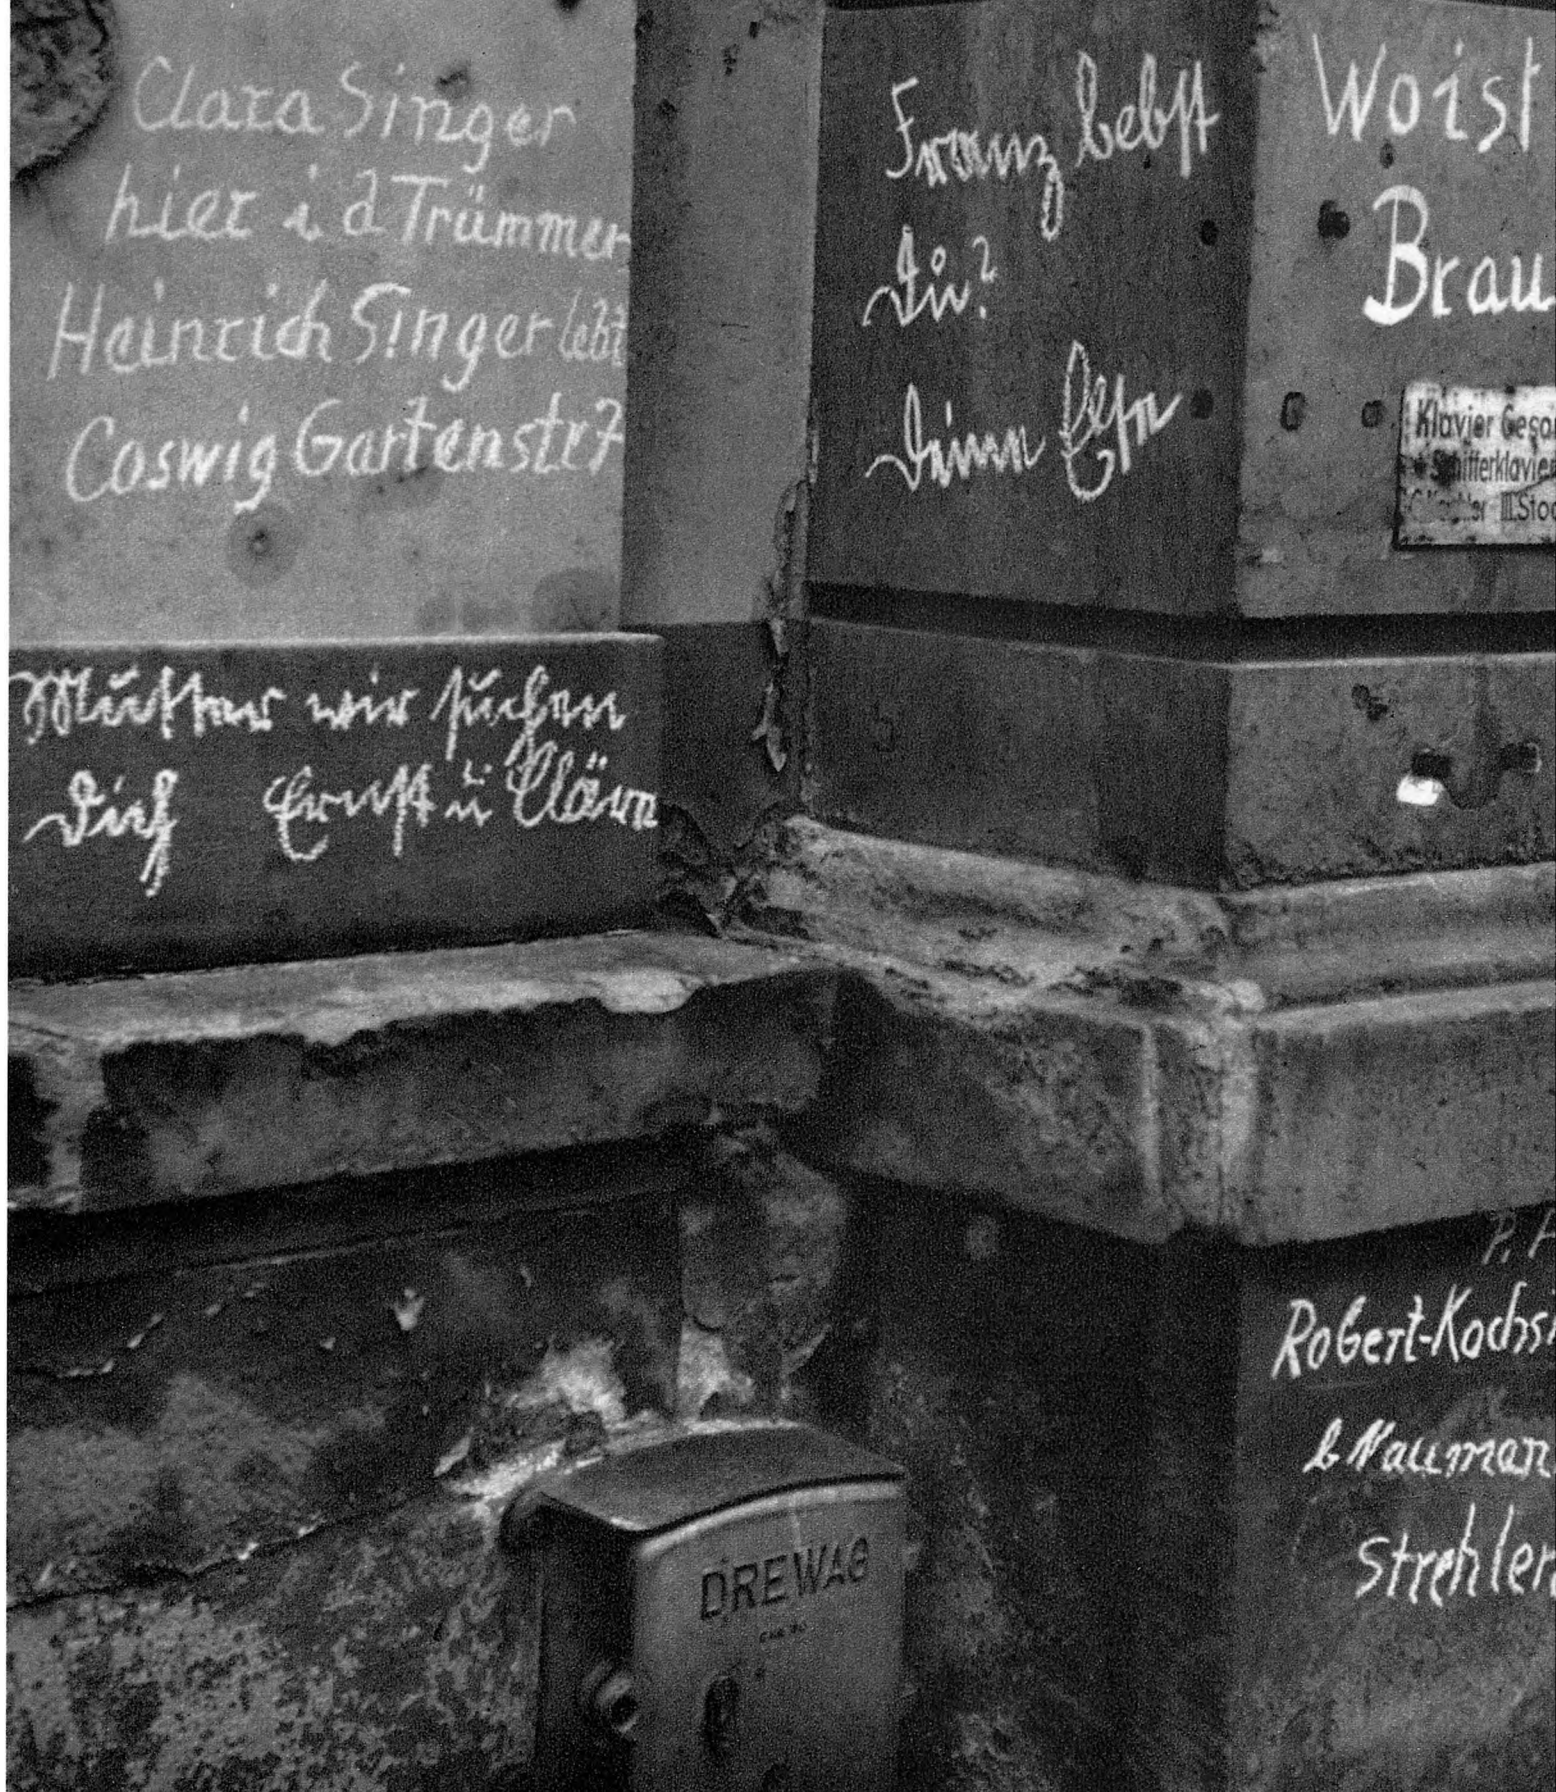 Clara Singer
hier i d Trümmer
Heinrich Singer lebt
Coswig Gartenstr 7
Mutter wir suchen
Dich Ernst u Cläre
Franz lebst
Du?
Deine
Wo ist
Brau
Klavier Gesan
Schifferklavier
III.Stoc
Robert-Kochst
b Nauman
Strehlen
DREWAG